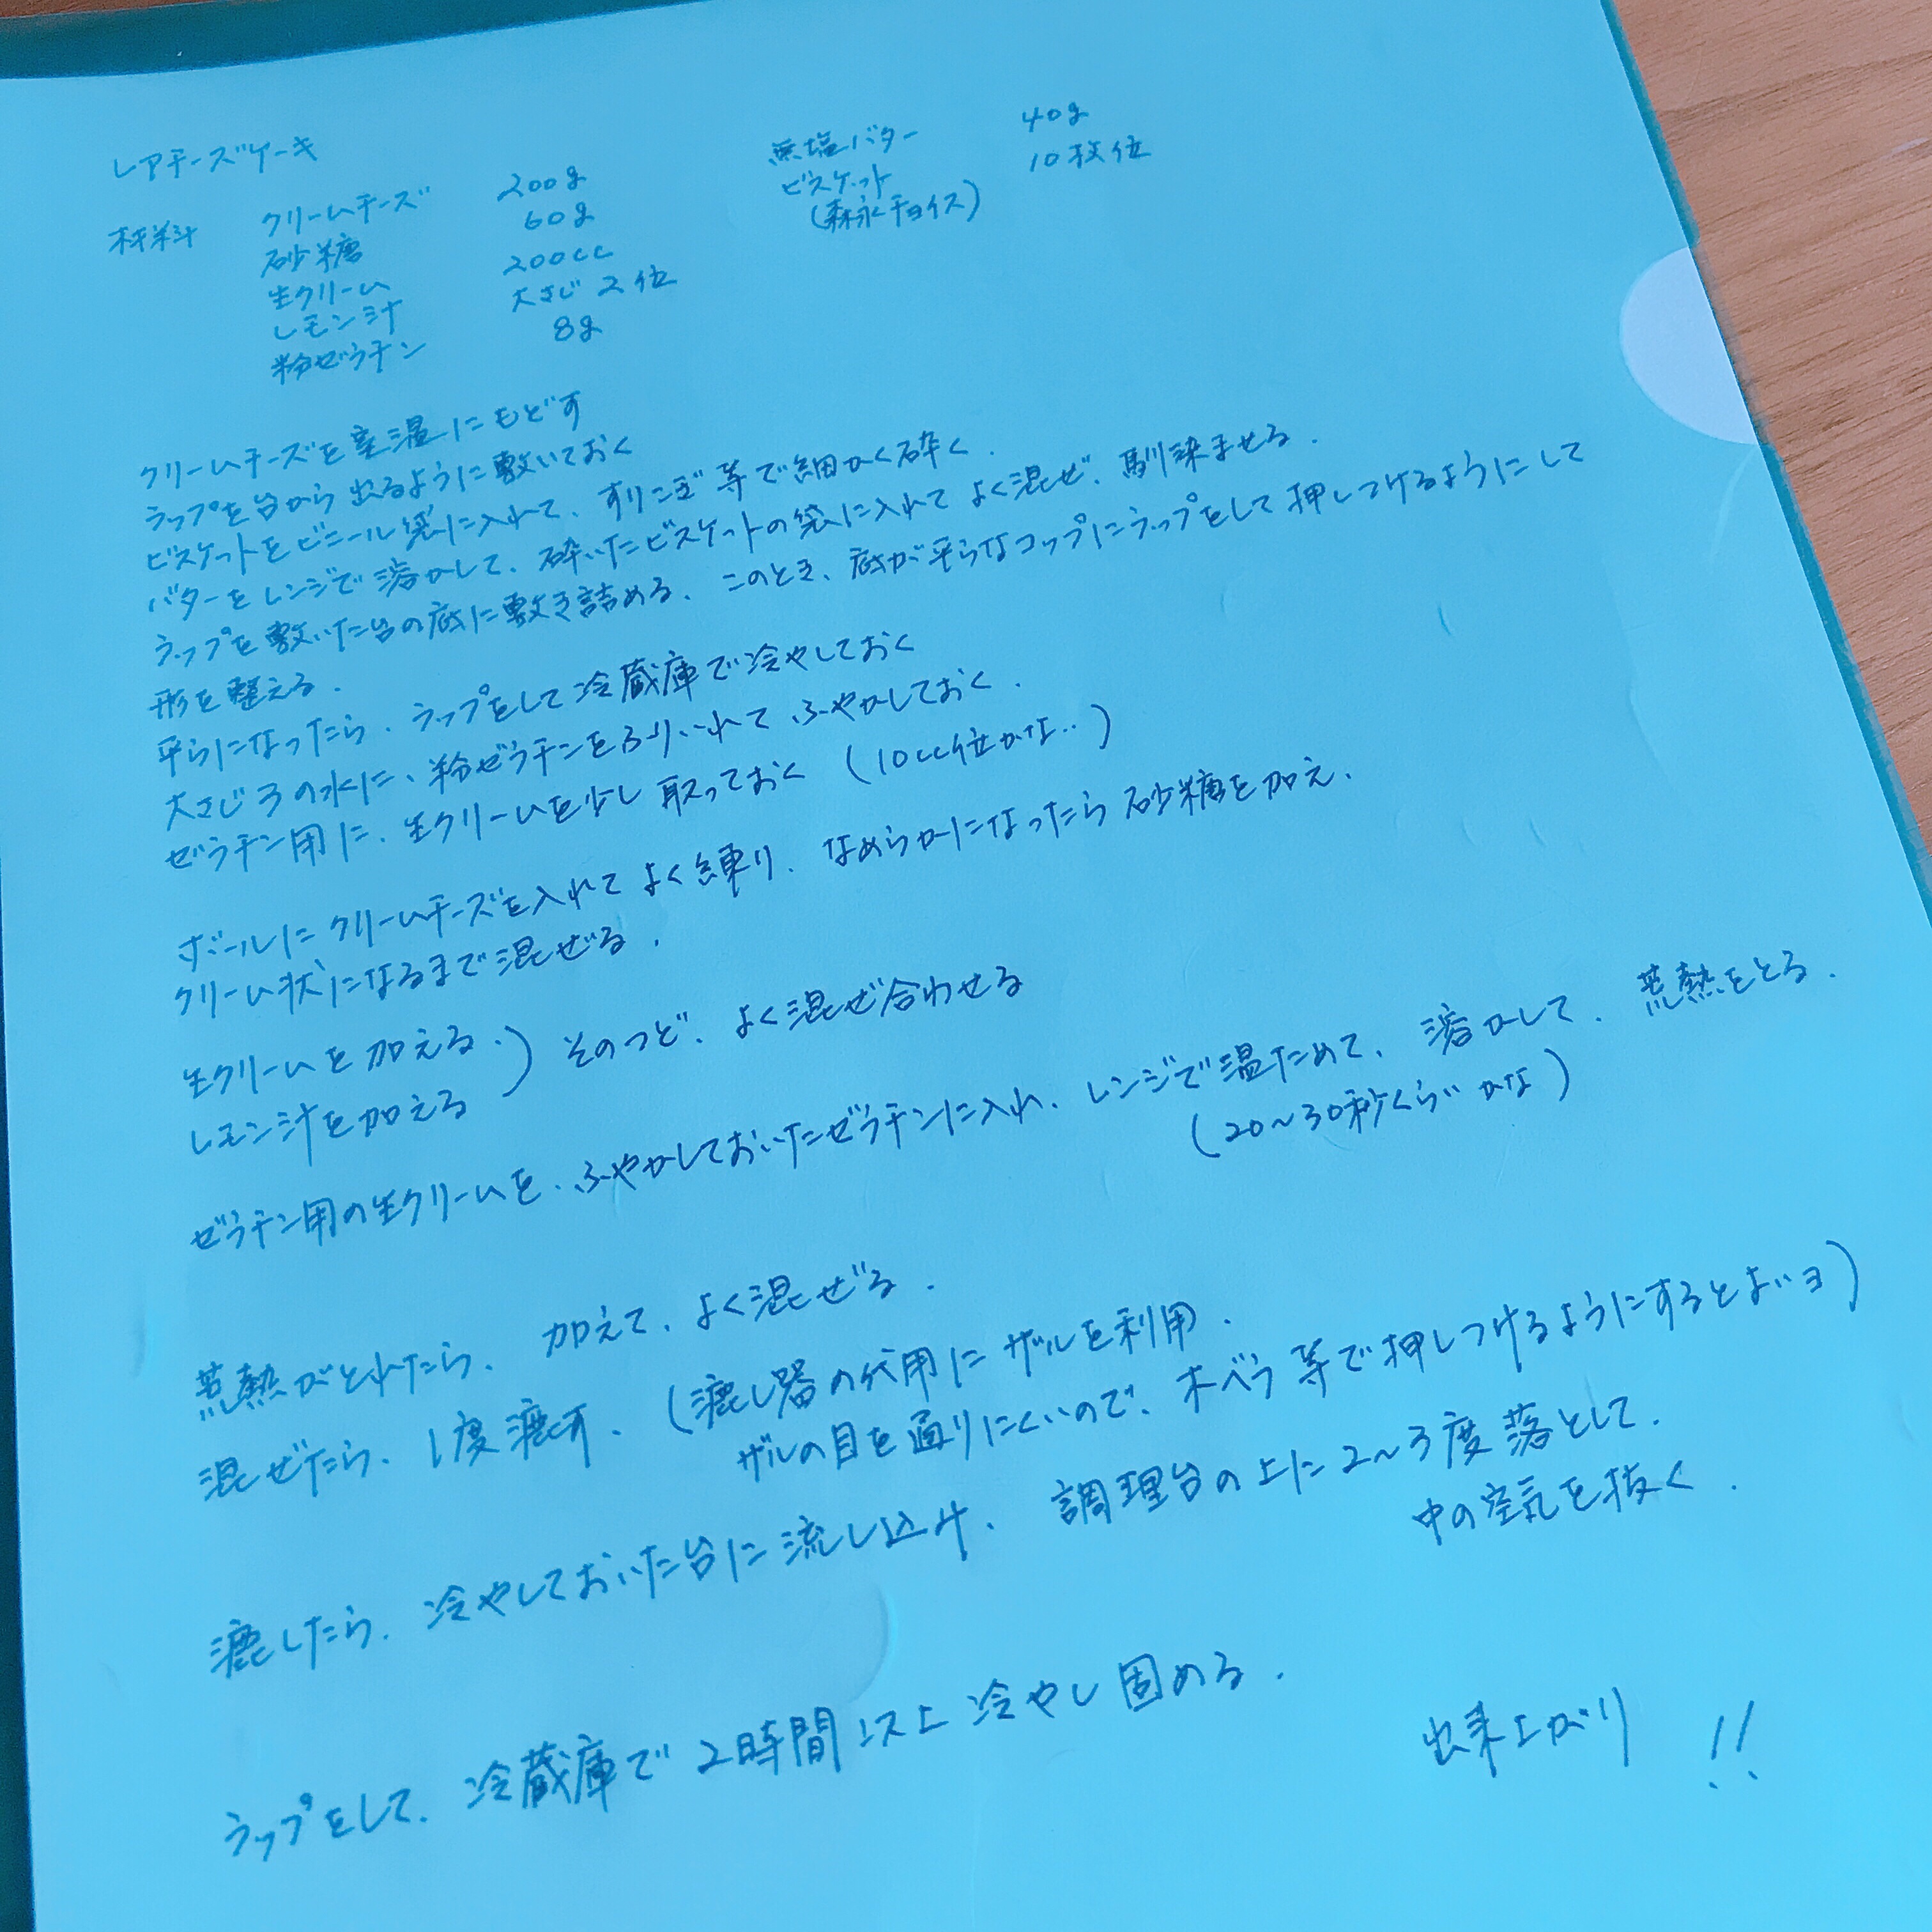 レアチーズケーキ
材料 クリームチーズ 200g 無塩バター 40g
砂糖 60g ビスケット 10枚位
生クリーム 200cc (森永チョイス)
レモン汁 大さじ2位
粉ゼラチン 8g
クリームチーズを室温にもどす
ラップを台から出るように敷いておく
ビスケットをビニール袋に入れて、すりこぎ等で細かく砕く.
バターをレンジで溶かして、砕いたビスケットの袋に入れてよく混ぜ、馴染ませる.
ラップを敷いた台の底に敷き詰める、このとき、底が平らなコップにラップをして押しつけるようにして
形を整える.
平らになったら、ラップをして冷蔵庫で冷やしておく
大さじ3の水に、粉ゼラチンをふりいれてふやかしておく.
ゼラチン用に、生クリームを少し取っておく(10cc位かな..)
ボールにクリームチーズを入れてよく練り、なめらかになったら砂糖を加え、
クリーム状になるまで混ぜる.
生クリームを加える、)そのつど、よく混ぜ合わせる
レモン汁を加える
ゼラチン用の生クリームを、ふやかしておいたゼラチンに入れ、レンジで温ためて、溶かして、荒熱をとる.
(20~30秒くらいかな)
荒熱がとれたら、加えて、よく混ぜる.
混ぜたら、1度漉す、(漉し器の代用にザルを利用.
ザルの目を通りにくいので、木ベラ等で押しつけるようにするとよいヨ)
漉したら、冷やしておいた台に流し込み、調理台の上に2~3度落として、
中の空気を抜く.
ラップをして、冷蔵庫で2時間以上冷やし固める.
出来上がり!!